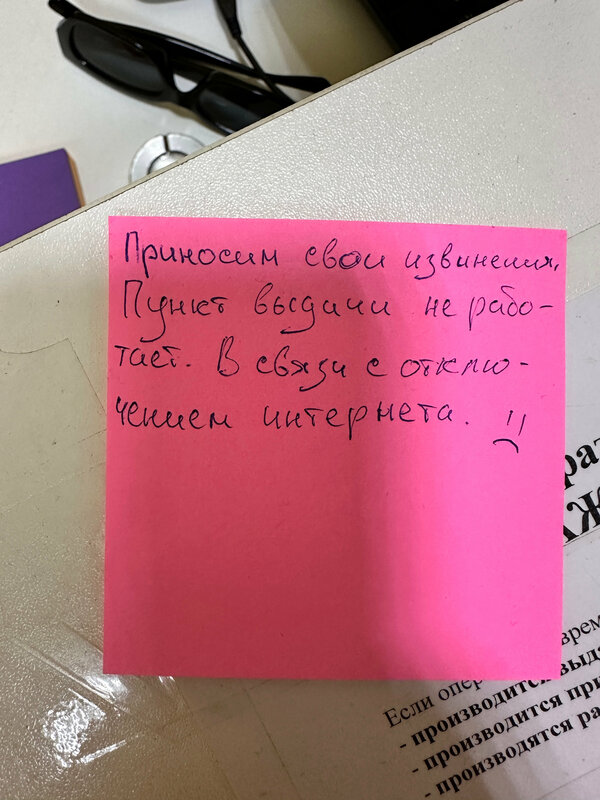 Приносим свои извинения.
Пункт выдачи не рабо-
тает. В связи с отклю-
чением интернета.
Если
- производится
- производится
- производятся